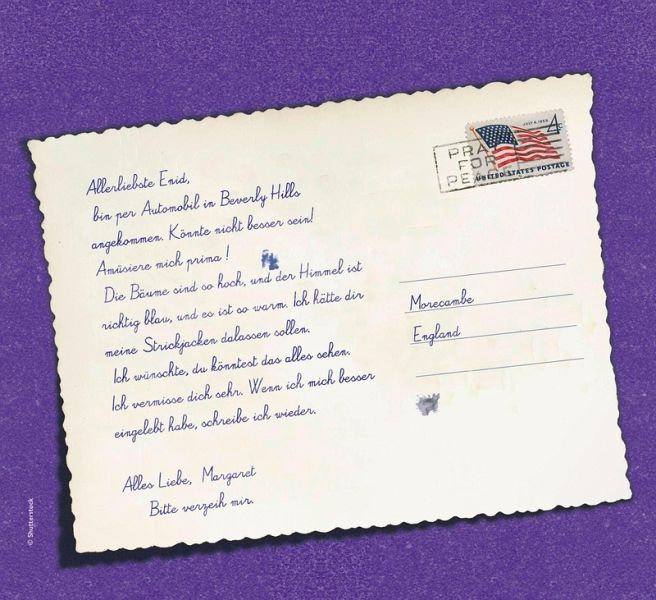 Allerliebste Enid,
bin per Automobil in Beverly Hills
angekommen. Könnte nicht besser sein!
Amüsiere mich prima!
Die Bäume sind so hoch, und der Himmel ist
richtig blau, und es ist so warm. Ich hätte dir
meine Strickjacken dalassen sollen.
Ich wünschte, du könntest das alles sehen.
Ich vermisse dich sehr. Wenn ich mich besser
eingelebt habe, schreibe ich wieder.
Alles Liebe, Margaret
Bitte verzeih mir.
PRAY
FOR
PEACE
JULY 4, 1960
4c
UNITED STATES POSTAGE
Morecambe
England
© Shutterstock